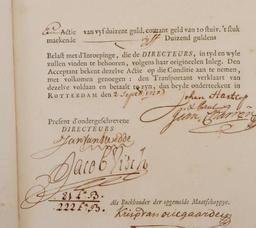 Een Actie van vyf duizent guld. courant geld van 20 stuiv. 't stuk
maekende vyff Duizend guldens
Belast met d'Inroepinge, die de DIRECTEURS, in tyd en wyle
zullen vinden te behooren, volgens haar origineelen Inleg. Den
Acceptant bekent dezelve Actie op die Conditie aan te nemen,
met volkomen genoegen: den Transportant verklaart van
dezelve voldaan en betaalt te zyn, dus beyde onderteekent in
ROTTERDAM den 2 Sept
Johan
Present d'ondergeschrevene
DIRECTEURS
Jacob Visch
222
Als Boekhouder der opgemelde Maatschappye.